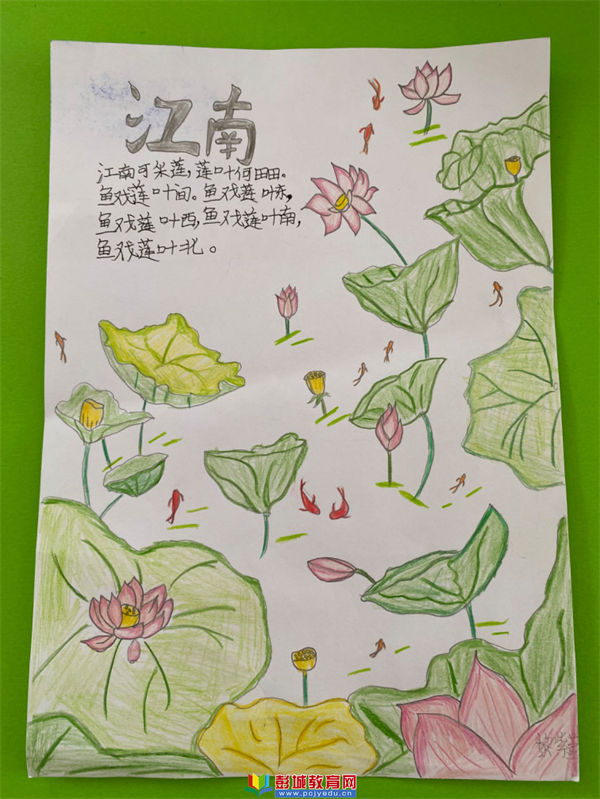 江南
江南可采莲，莲叶何田田。
鱼戏莲叶间。鱼戏莲叶东，
鱼戏莲叶西，鱼戏莲叶南，
鱼戏莲叶北。
彭城教育网
www.pcjyedu.cn